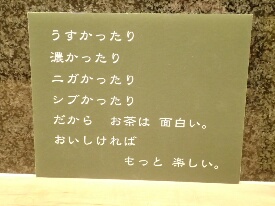 うすかったり
濃かったり
ニガかったり
シブかったり
だから　お茶は 面白い。
おいしければ
もっと 楽しい。